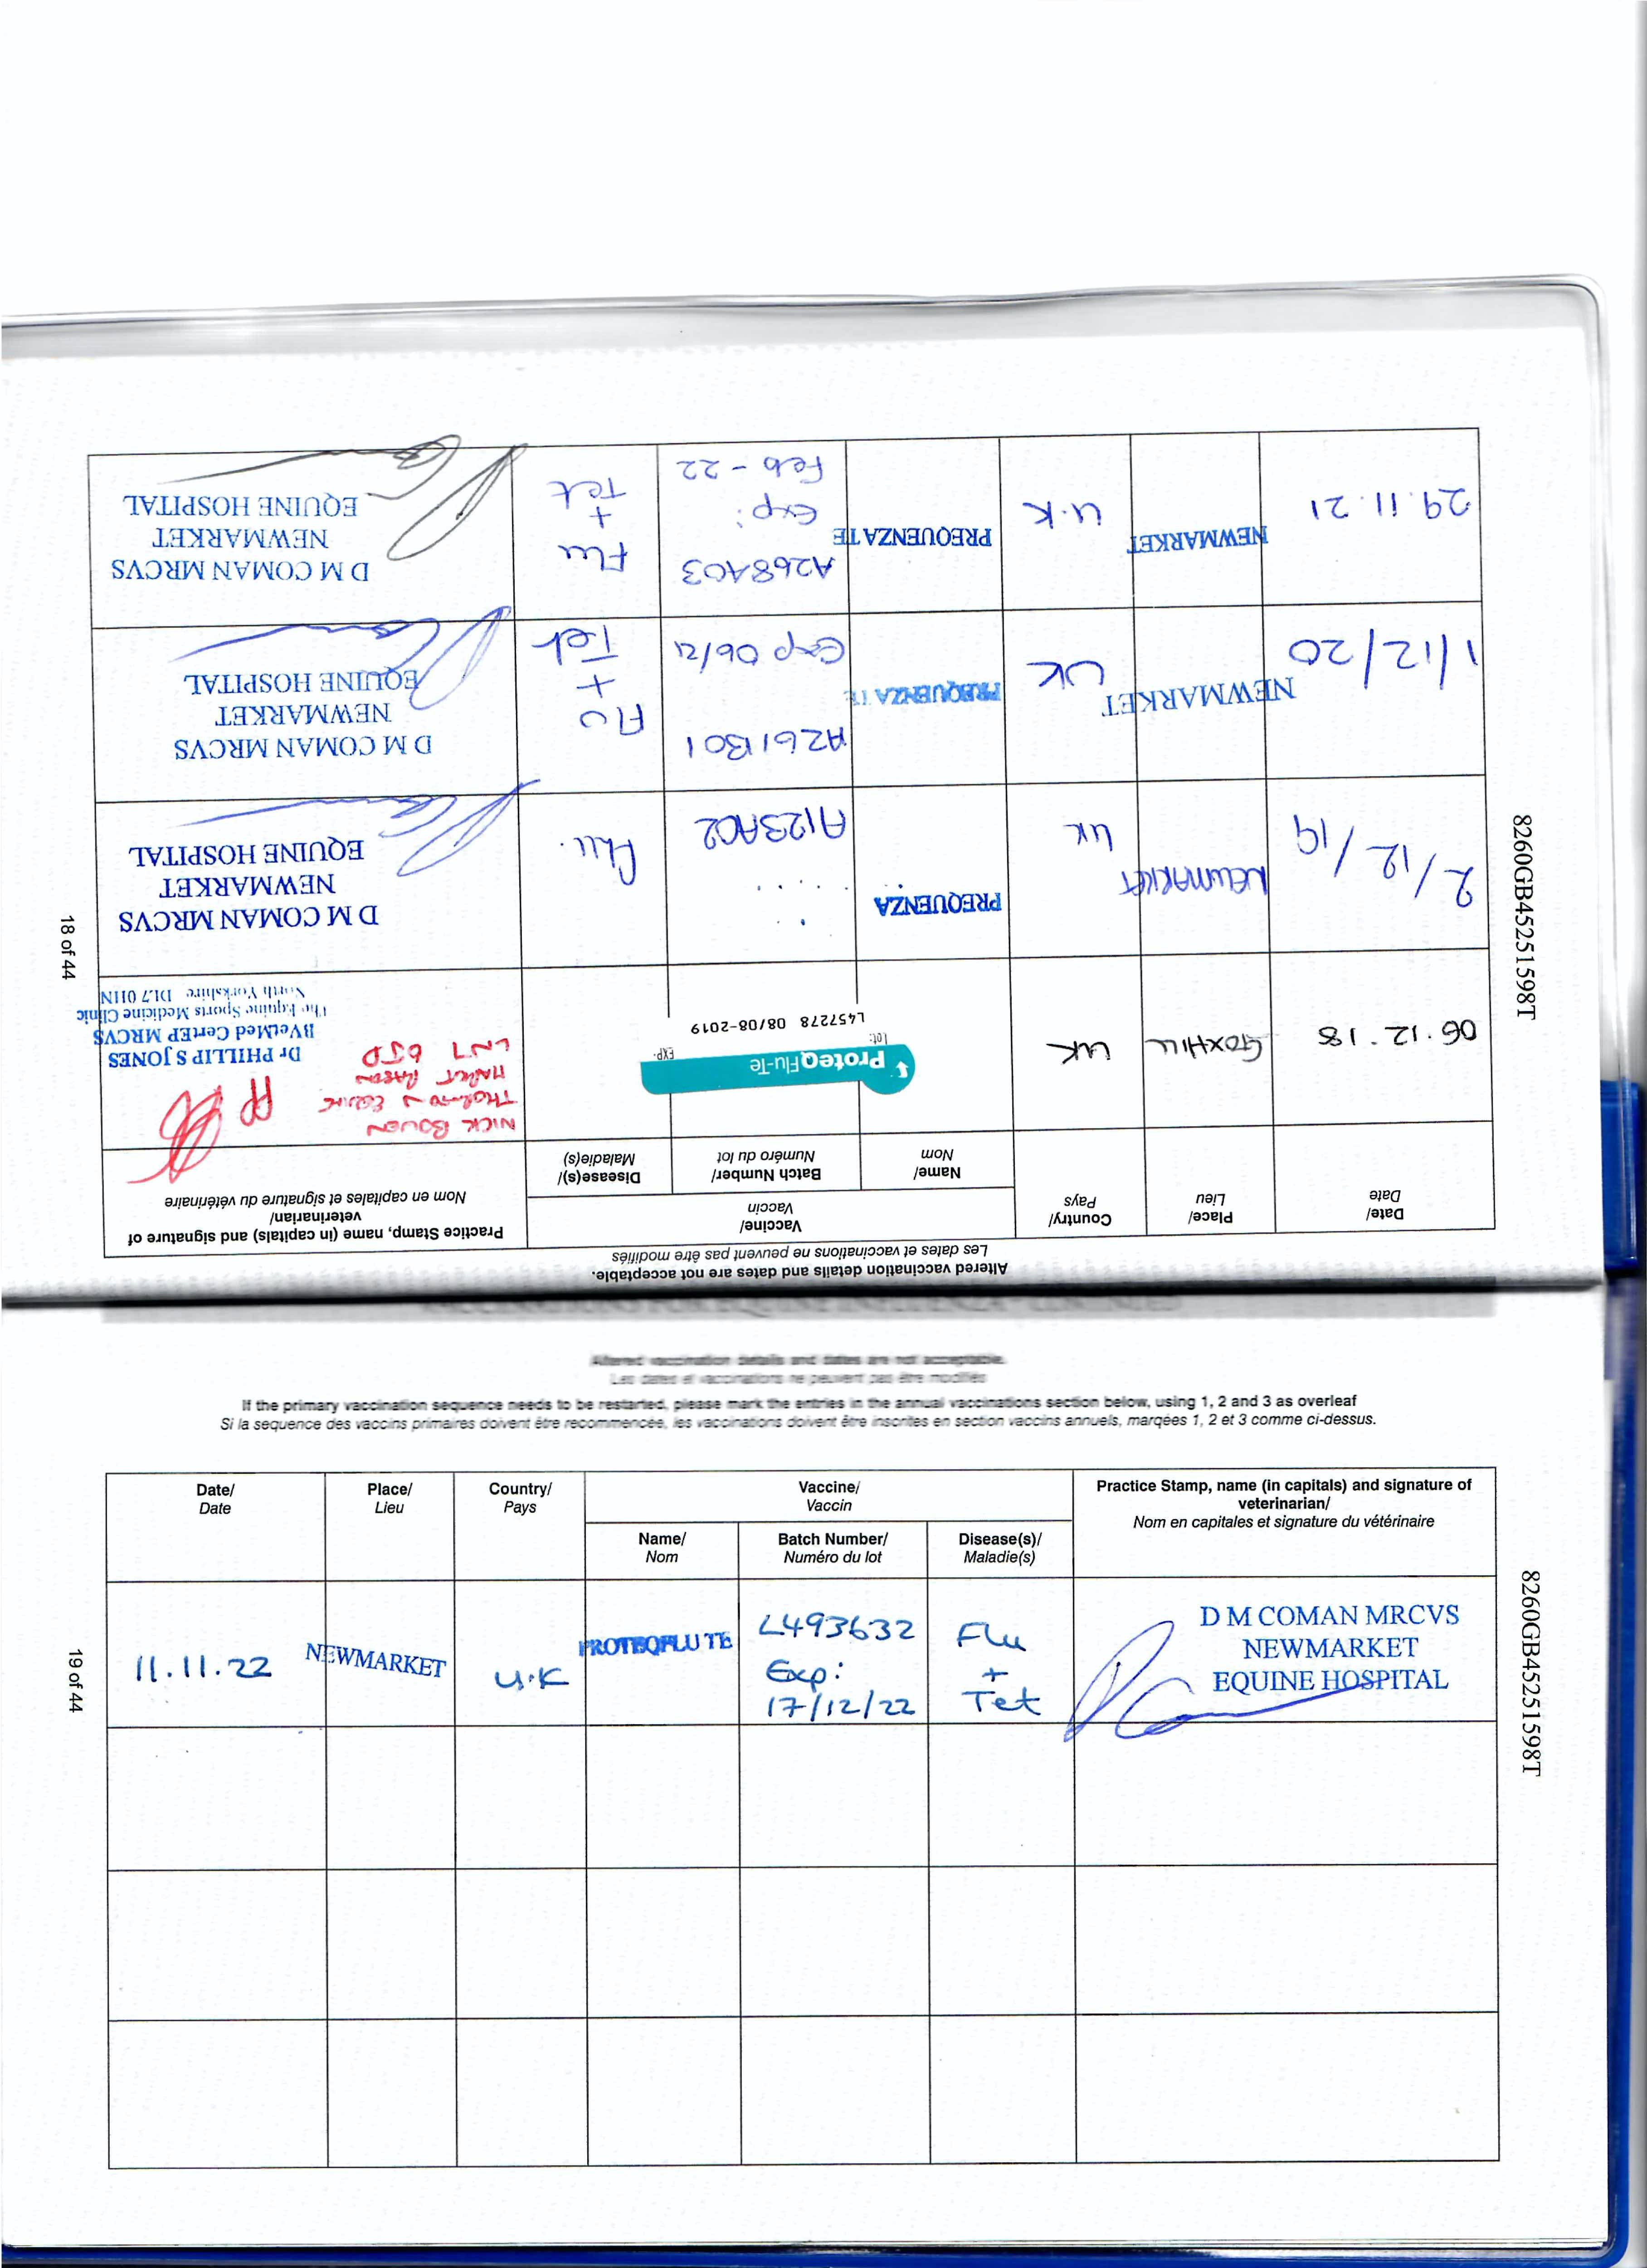 Altered vaccination details and dates are not acceptable.
Les dates et vaccinations ne peuvent pas être modifiés
Date/
Date
Place/
Lieu
Country/
Pays
Vaccine/
Vaccin
Name/
Nom
Batch Number/
Numéro du lot
Disease(s)/
Maladie(s)
Practice Stamp, name (in capitals) and signature of
veterinarian/
Nom en capitales et signature du vétérinaire
06.12.18
GOXHILL
UK
ProteqFlu-Te
Lot:
EXP.
L457278 08/08-2019
NICK BOWEN
THORNTON EQUINE
MARKET RASEN
LN7 6JD
PP
Dr PHILLIP S JONES
BVetMed CertEP MRCVS
The Equine Sports Medicine Clinic
North Yorkshire DL7 0HN
2/12/19
NEWMARKET
UK
PREQUENZA
A123A02
Flu.
D M COMAN MRCVS
NEWMARKET
EQUINE HOSPITAL
1/12/20
NEWMARKET
UK
PREQUENZA TE
A261B01
Exp 06/21
FLU
+
Tet
D M COMAN MRCVS
NEWMARKET
EQUINE HOSPITAL
29.11.21
NEWMARKET
U.K
PREQUENZA TE
A268A03
Exp:
Feb-22
Flu
+
Tet
D M COMAN MRCVS
NEWMARKET
EQUINE HOSPITAL
18 of 44
8260GB45251598T
Altered vaccination details and dates are not acceptable.
Les dates et vaccinations ne peuvent pas être modifiés
If the primary vaccination sequence needs to be restarted, please mark the entries in the annual vaccinations section below, using 1, 2 and 3 as overleaf
Si la sequence des vaccins primaires doivent être recommencée, les vaccinations doivent être inscrites en section vaccins annuels, marqées 1, 2 et 3 comme ci-dessus.
Date/
Date
Place/
Lieu
Country/
Pays
Vaccine/
Vaccin
Name/
Nom
Batch Number/
Numéro du lot
Disease(s)/
Maladie(s)
Practice Stamp, name (in capitals) and signature of
veterinarian/
Nom en capitales et signature du vétérinaire
11.11.22
NEWMARKET
U.K
PROTEQFLU TE
L493632
Exp:
17/12/22
Flu
+
Tet
D M COMAN MRCVS
NEWMARKET
EQUINE HOSPITAL
19 of 44
8260GB45251598T